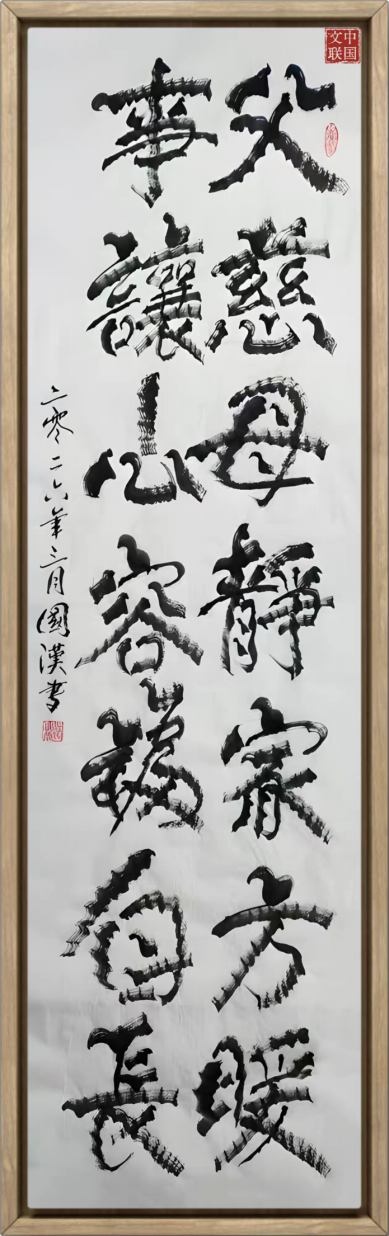 中国文联
父慈母靜家方暖
事讓心容福自長
二零二六年三月國漢書